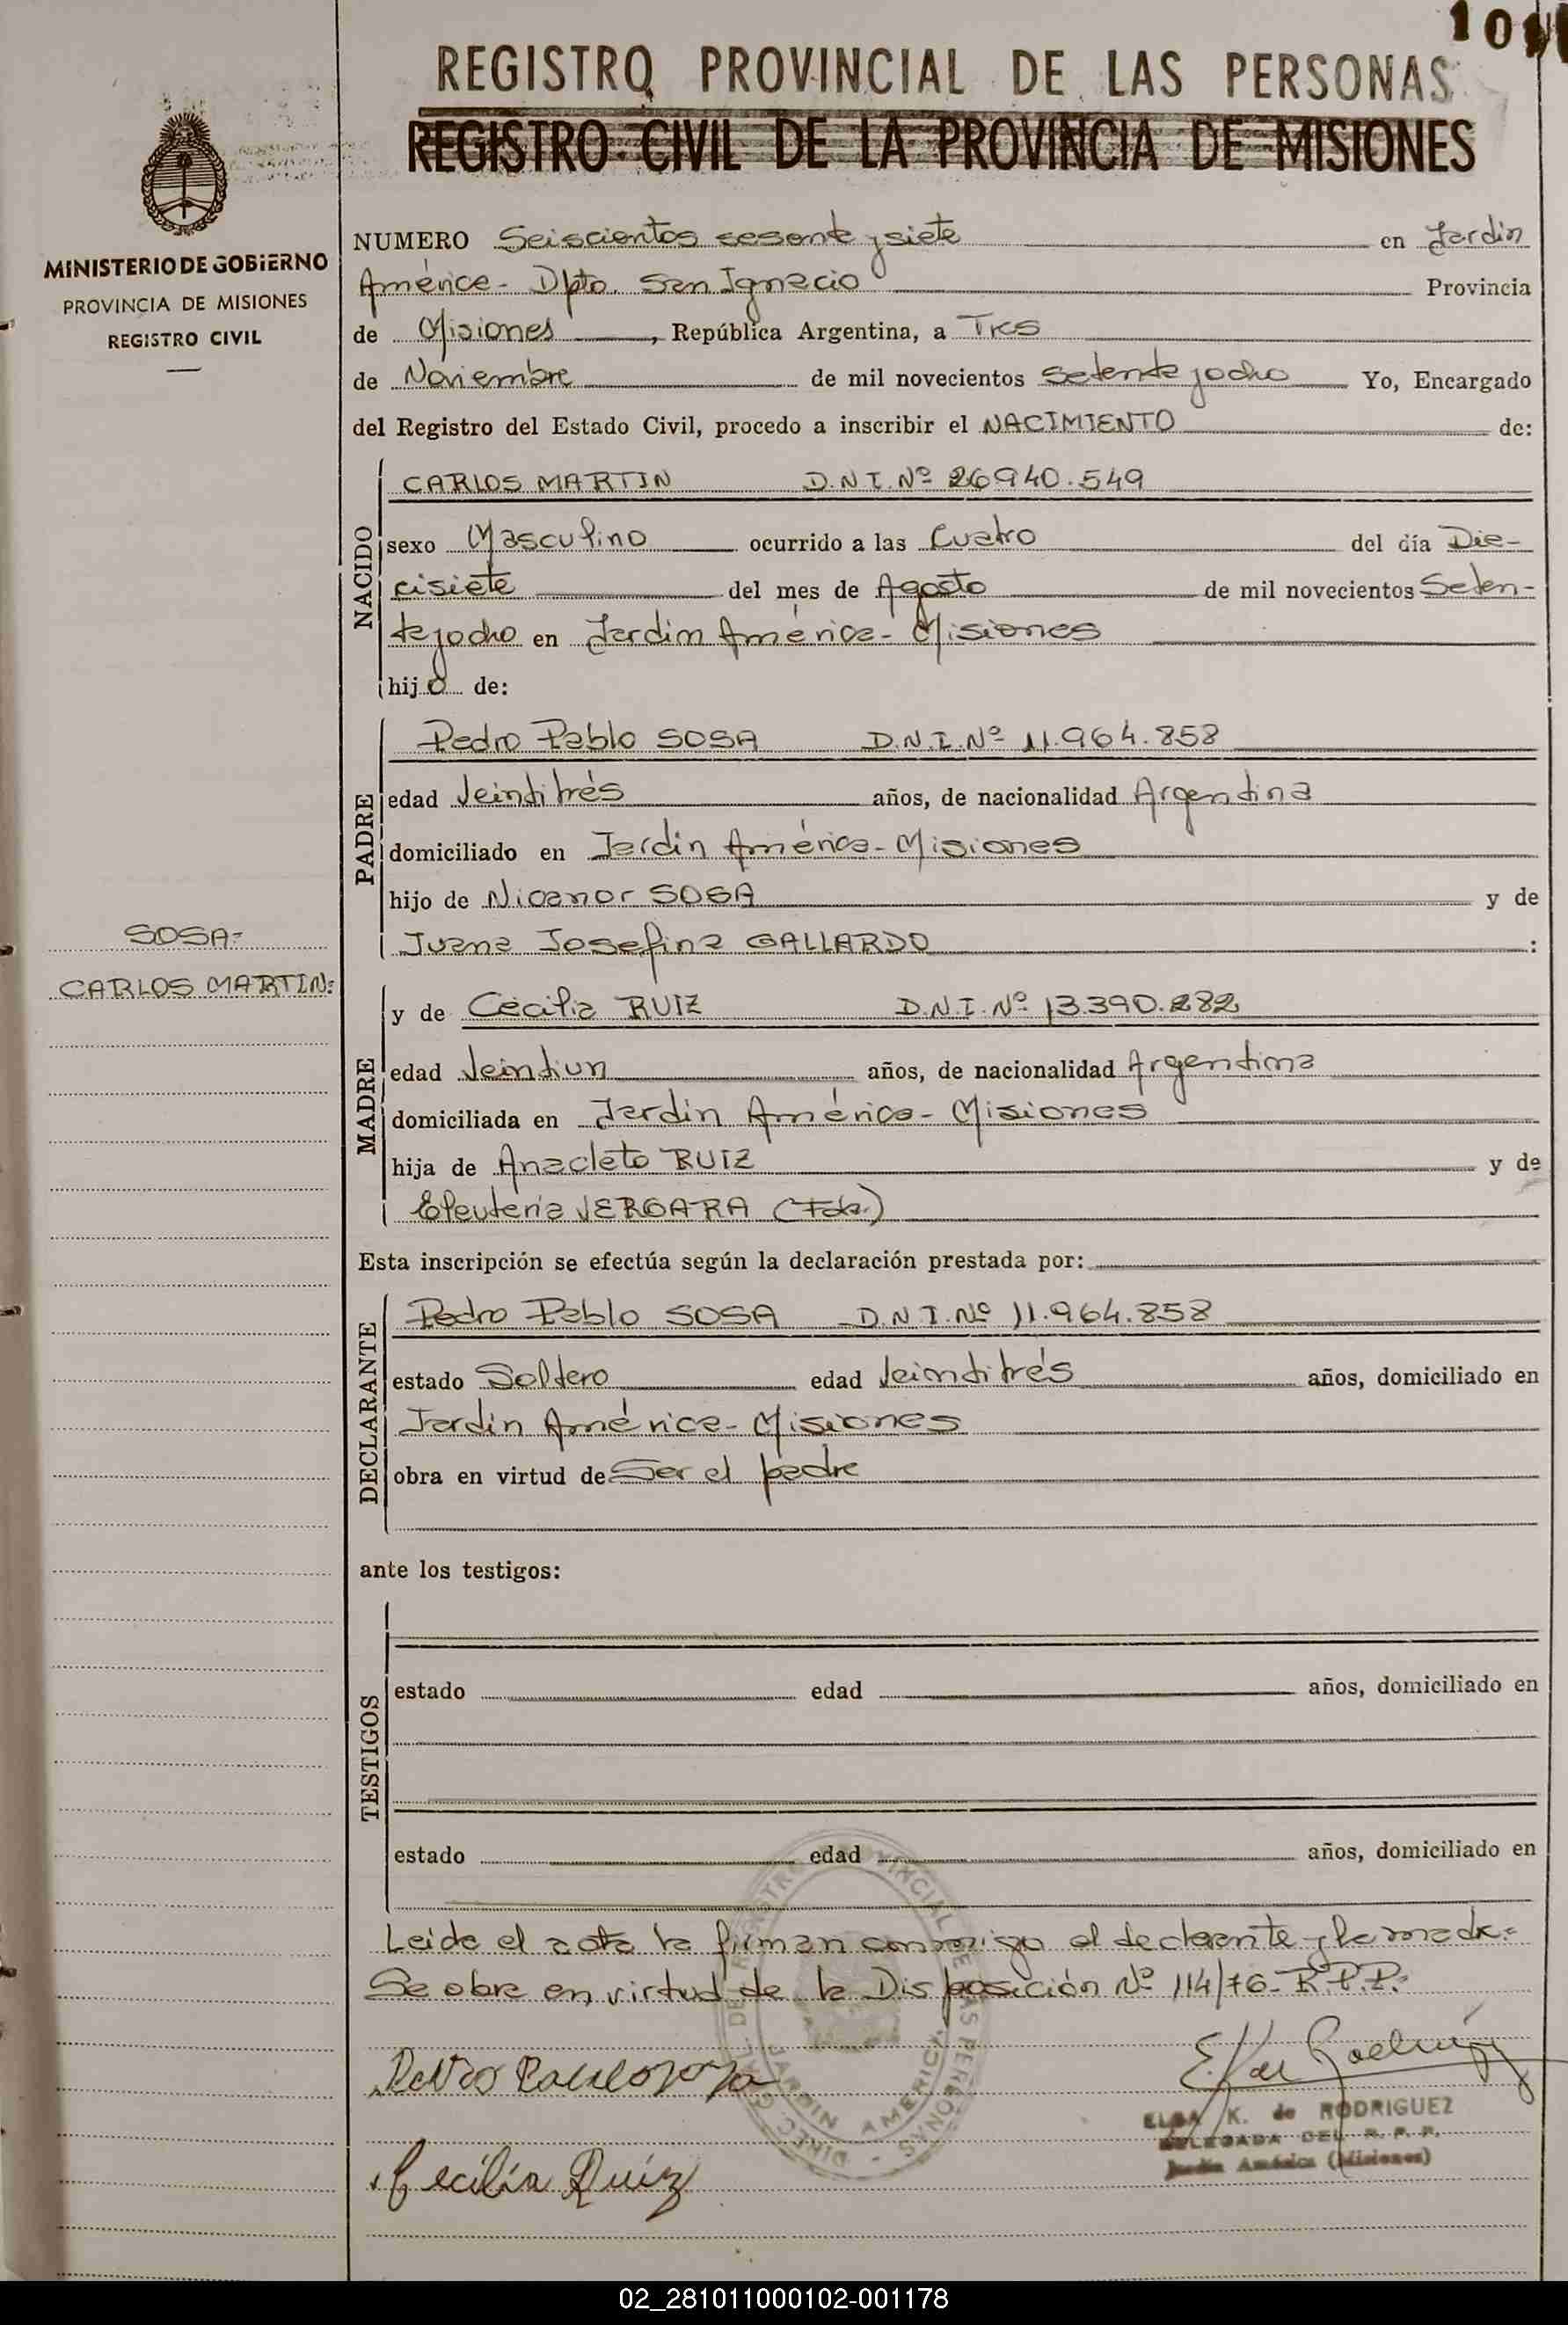 REGISTRO PROVINCIAL DE LAS PERSONAS
REGISTRO CIVIL DE LA PROVINCIA DE MISIONES
MINISTERIO DE GOBIERNO
PROVINCIA DE MISIONES
REGISTRO CIVIL
SOSA=
CARLOS MARTIN=
NUMERO Seiscientos sesenta y siete en Jardín
América - Dpto. San Ignacio Provincia
de Misiones, República Argentina, a Tres
de Noviembre de mil novecientos setenta y ocho Yo, Encargado
del Registro del Estado Civil, procedo a inscribir el NACIMIENTO de:
NACIDO
CARLOS MARTIN D.N.I. Nº 26940.549
sexo Masculino ocurrido a las Cuatro del día Die-
cisiete del mes de Agosto de mil novecientos Seten-
ta y ocho en Jardín América - Misiones
hijo de:
PADRE
Pedro Pablo SOSA D.N.I. Nº 11.964.858
edad Veintitrés años, de nacionalidad Argentina
domiciliado en Jardín América - Misiones
hijo de Nicanor SOSA y de
Juana Josefina GALLARDO :
MADRE
y de Cecilia RUIZ D.N.I. Nº 13.390.282
edad Veintiun años, de nacionalidad Argentina
domiciliada en Jardín América - Misiones
hija de Anacleto RUIZ y de
Eleuteria VERGARA (Fda.)
Esta inscripción se efectúa según la declaración prestada por:
DECLARANTE
Pedro Pablo SOSA D.N.I. Nº 11.964.858
estado Soltero edad Veintitrés años, domiciliado en
Jardín América - Misiones
obra en virtud de Ser el padre
ante los testigos:
TESTIGOS
estado edad años, domiciliado en
estado edad años, domiciliado en
Leida el acta la firman conmigo el declarante y la madre=
Se obra en virtud de la Disposición Nº 114/76- R.P.P.=
Cecilia Ruiz
ELSA K. de RODRIGUEZ
DELEGADA DEL R. P. P.
Jardín América (Misiones)
02_281011000102-001178